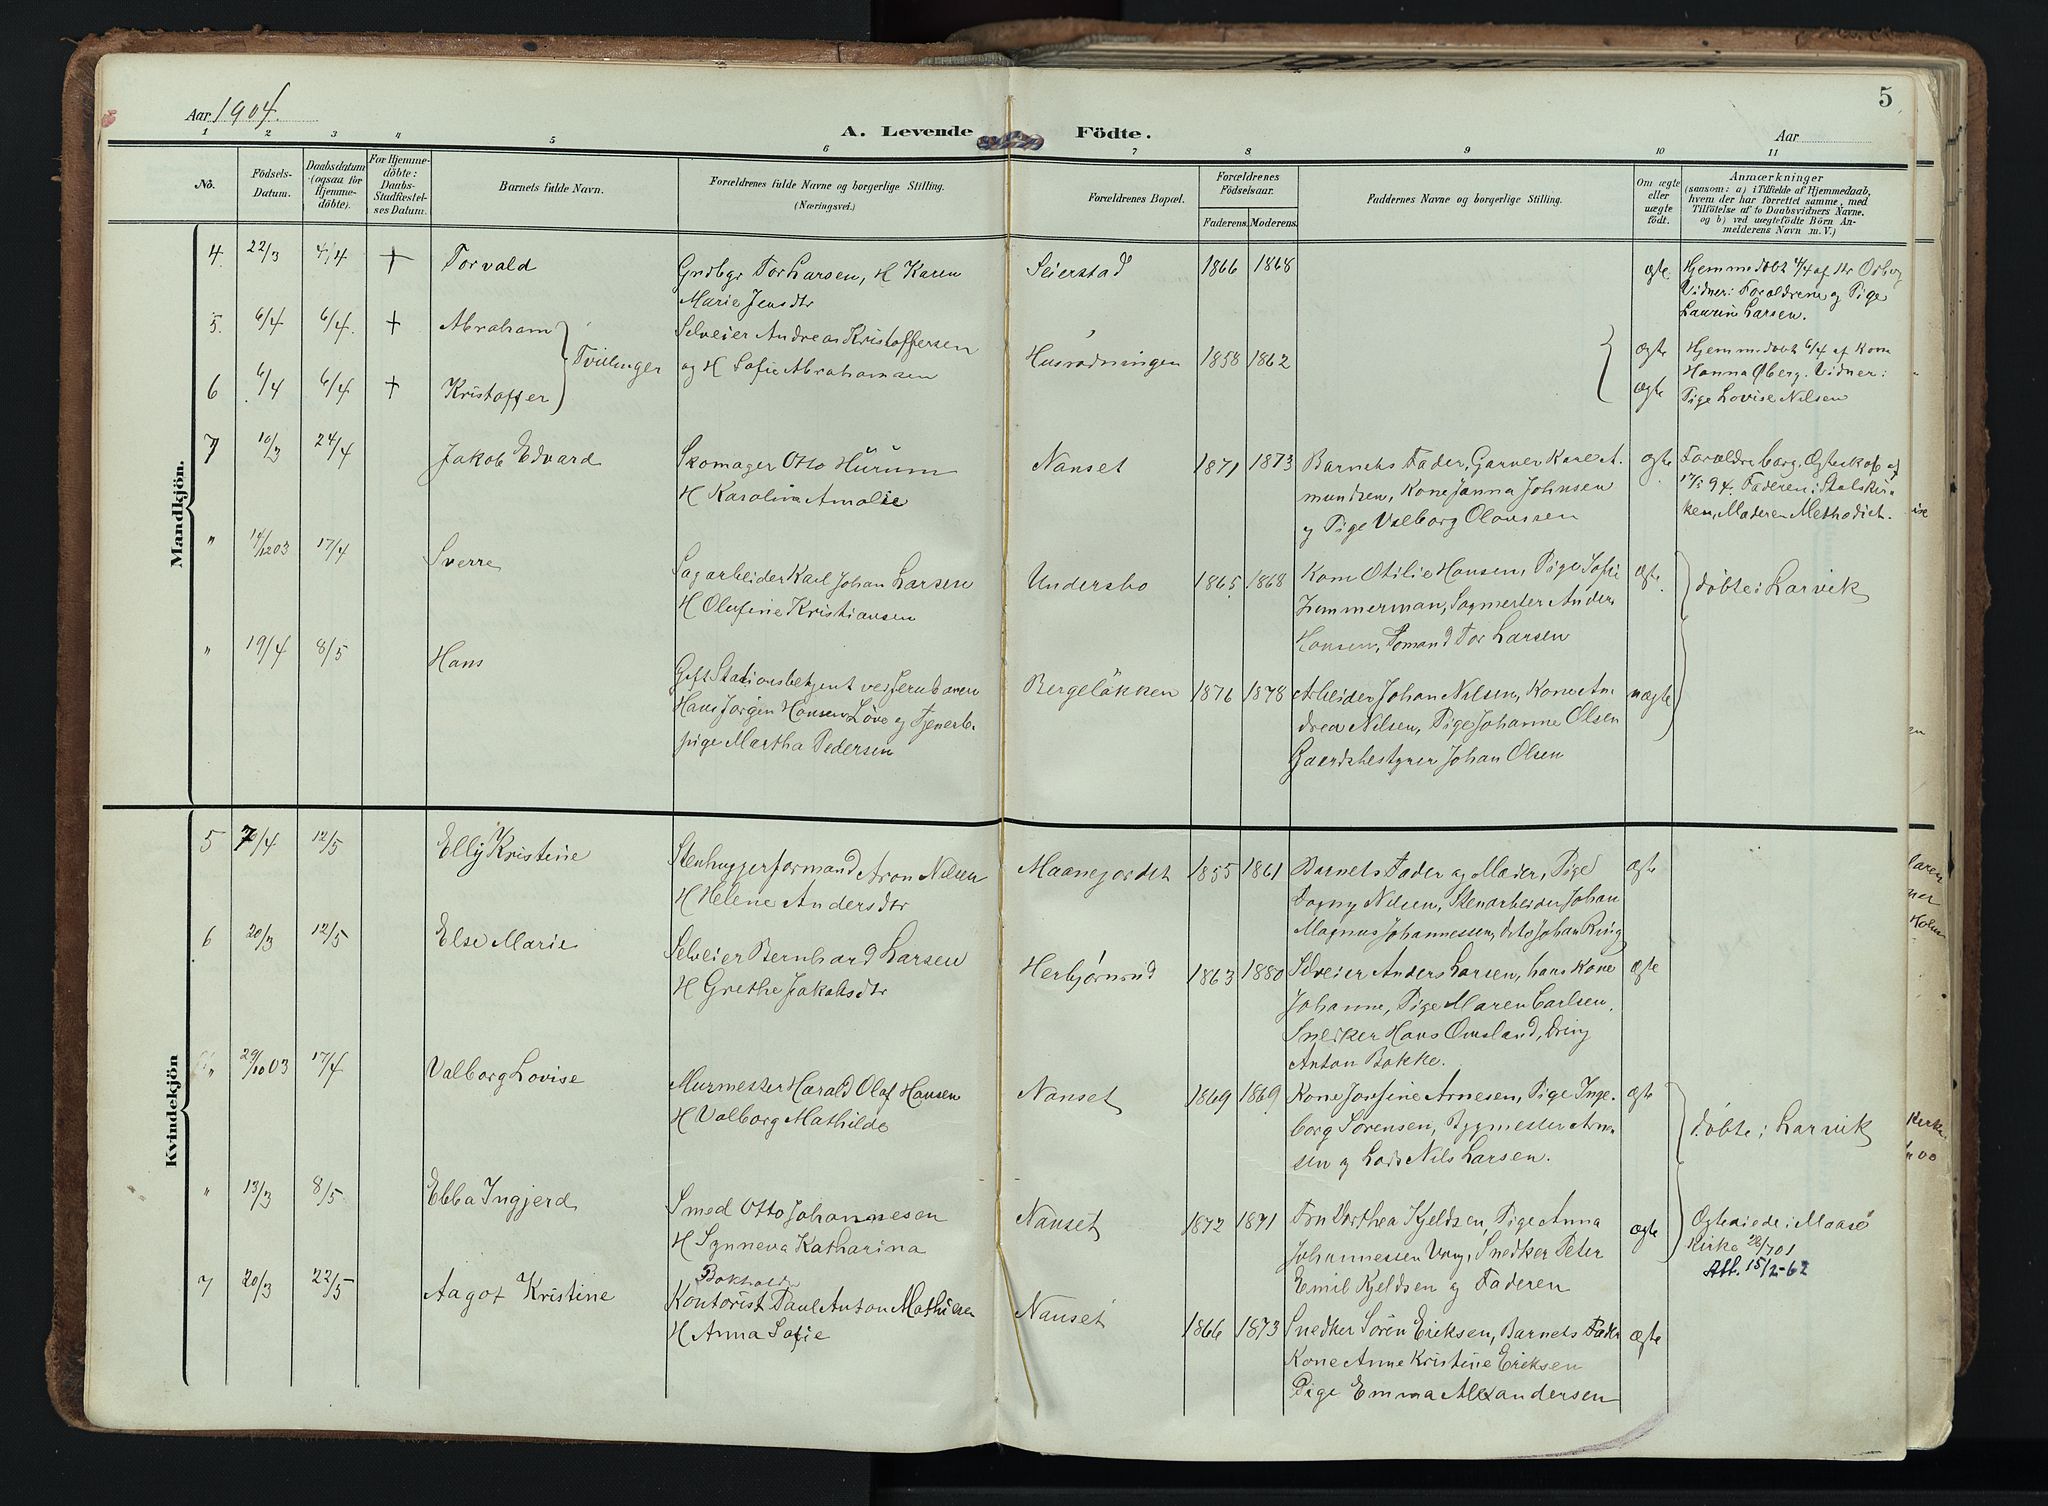 Aar 1904.
A. Levende Födte.
Aar
5
1 2 3 4 5 6 7 8 9 10 11
No.
Födsels-Datum.
Daabsdatum (ogsaa for Hjemme-döbte).
For Hjemme-döbte: Daabs-Stadfæstel-ses Datum.
Barnets fulde Navn.
Forældrenes fulde Navne og borgerlige Stilling.
(Næringsvei.)
Forældrenes Bopæl.
Forældrenes Födselsaar.
Faderens. Moderens.
Faddernes Navne og borgerlige Stilling.
Om ægte eller uægte födt.
Anmærkninger
(saasom: a) i Tilfælde af Hjemmedaab,
hvem der har forrettet samme, med
Tilföielse af to Daabsvidners Navne.
og b) ved uægtefödte Börn An-
melderens Navn m. V.)
Mandkjön.
4 22/3 4/4 + Torvald
Grdbgr Tor Larsen, H Karen
Marie Jensdtr
Seierstad 1866 1868 ægte.
Hjemmedøbt 4/4 af
Vidner: Forældrene og Pige
Laurine Larsen.
5. 6/4 6/4. + Abraham
6 6/4 6/4. + Kristoffer
Tvillinger
Selveier Andreas Kristoffersen
og H Sofie Abrahamsen
Husrødningen 1858 1862 ægte
ægte
Hjemmedøbt 6/4 af Kone
Hanna Øberg. Vidner:
Pige Lovise Nilsen
7 10/3 24/4 Jakob Edvard
Skomager Otto Hurum
H Karoline Amalie
Nanset 1871 1873
Barnets Fader, Garver Kare A-
mundsen, Kone Janna Johnsen
og Pige Valborg Olavssen
ægte
Forældre borg. Ægteskab af
94. Faderen i Statskir-
ken, Moderen Methodist.
" 14/12 03 17/4 Sverre
Sagarbeider Karl Johan Larsen
H Olufine Kristiansen
Undersbo 1865 1868
Kone Otilie Hansen, Pige Sofie
Zimmerman, Sagmester Anders
Hansen, Formand Tor Larsen
ægte.
døbte i Larvik
" 19/4 8/5 Hans
Gift Stationsbetjent ved Jernbanen
Hans Jørgen Hansen Löve og Tjeneste-
pige Martha Pedersen
Bergelökken 1876 1878
Arbeider Johan Nilsen, Kone An-
drea Nilsen, Pige Johanne Olsen
Gaardsbestyrer Johan Olsen
uægte
Kvindekjön
5 7/4 12/5 Elly Kristine
Stenhuggerformand Aron Nilsen
H Helene Andersdtr
Maanejordet 1855 1861
Barnets Fader og Moder, Pige
Dagny Nilsen, Stenarbeider Johan
Magnus Johannessen, dito Johan Ring
ægte
6 20/3 12/5 Else Marie
Selveier Bernhard Larsen
H Grethe Jakobsdtr
Herbjørnrød 1863 1880
Selveier Anders Larsen, hans Kone
Johanne, Pige Maren Carlsen,
Snedker Hans Omsland, Dreng
Anton Bakke.
ægte
" 29/10 03 17/4 Valborg Lovise
Murmester Harald Olaf Hansen
H Valborg Mathilde
Nanset 1869 1869
Kone Josefine Arnesen, Pige Inge-
borg Sörensen, Bygmester Arne-
sen og Lods Nils Larsen.
ægte
døbte i Larvik
" 13/3 8/5 Ebba Ingjerd
Smed Otto Johannesen
H Synneva Katharina
Nanset 1872 1871
Fru Dorthea Kjeldsen, Pige Anna
Johannessen Vorg, Snedker Peter
Emil Kjeldsen og Faderen
ægte
Ægteviede i Maasö
Kirke 28/7 01
Att. 15/2-62
7 20/3 22/5 Aagot Kristine
Bokhold.
Kontorist Paul Anton Mathisen
H Anna Sofie
Nanset 1866 1873
Snedker Sören Eriksen, Barnets Fader
Kone Anne Kristine Eriksen
Pige Emma Alexandersen
ægte